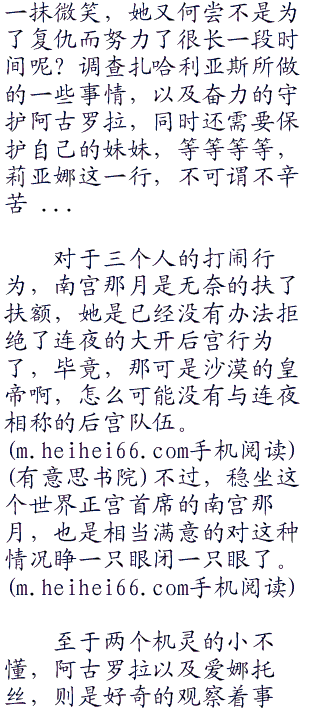 一抹微笑，她又何尝不是为
了复仇而努力了很长一段时
间呢？调查扎哈利亚斯所做
的一些事情，以及奋力的守
护阿古罗拉，同时还需要保
护自己的妹妹，等等等等，
莉亚娜这一行，不可谓不辛
苦 ...
对于三个人的打闹行
为，南宫那月是无奈的扶了
扶额，她是已经没有办法拒
绝了连夜的大开后宫行为
了，毕竟，那可是沙漠的皇
帝啊，怎么可能没有与连夜
相称的后宫队伍。
(m.heihei66.com手机阅读)
(有意思书院)不过，稳坐这
个世界正宫首席的南宫那
月，也是相当满意的对这种
情况睁一只眼闭一只眼了。
(m.heihei66.com手机阅读)
至于两个机灵的小不
懂，阿古罗拉以及爱娜托
丝，则是好奇的观察着事